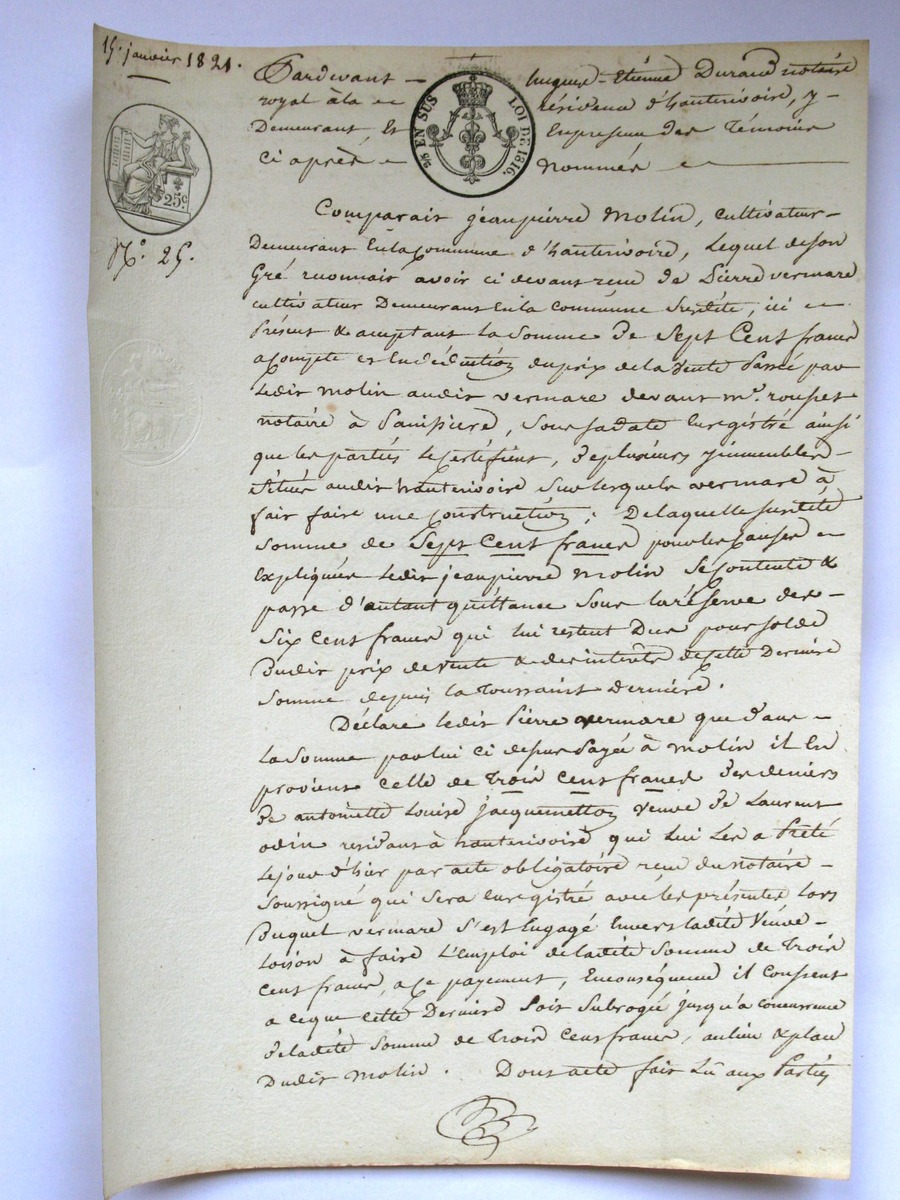 15. janvier 1821.
Pardevant hugues-Etienne Durand notaire
royal à la résidence d'hauterivoire, y
Demeurant, Et En presence des Témoins
ci après nommés
¼ EN SUS LOI DE 1816.
25c
N.º 25.
Comparait jeanpierre Molin, cultivateur
Demeurant En la Commune d'hauterivoire, Lequel de son
Gré reconnait avoir ci devant reçu de Pierre vermare
cultivateur Demeurant En la commune susdite, ici
Présent & acceptant la somme de Sept Cent francs
acompte et En déduction du prix de la vente Passée par
Ledit Molin audit vermare devant m.e rouset
notaire à Panissiere, sous sa date Enregistré ainsi
que les parties le certifient, de plusieurs immeubles
situés audit hauterivoire sur lesquels vermare à
fait faire une construction; De laquelle susdite
somme de Sept Cent francs pour les causes
Expliquées ledit jeanpierre Molin se contente &
passe d'autant quittance sous la réserve des
Six Cent francs qui lui restent Dus pour solde
Dudit prix de vente & des intérêts de cette Derniere
somme depuis la toussaint Derniere.
Déclare ledit Pierre vermare que dans
La somme par lui ci dessus Payée à Molin il En
provient celle de trois cent francs des deniers
de antoinette Louise jacquemetton veuve de Laurent
odin résidant à hauterivoire qui lui Les a Prété
le jour d'hier par acte obligatoire reçu du notaire
soussigné qui sera Enregistré avec les présentes Lors
Duquel vermare s'est Engagé Envers ladite Veuve
à faire L'emploi de ladite somme de trois
cent francs, a ce payement, En conséquence il consent
a ce que cette Derniere soit subrogée jusqu'à concurrence
de ladite somme de trois cent francs, au lieu & place
Dudit Molin. Dont acte fait Lu aux Parties